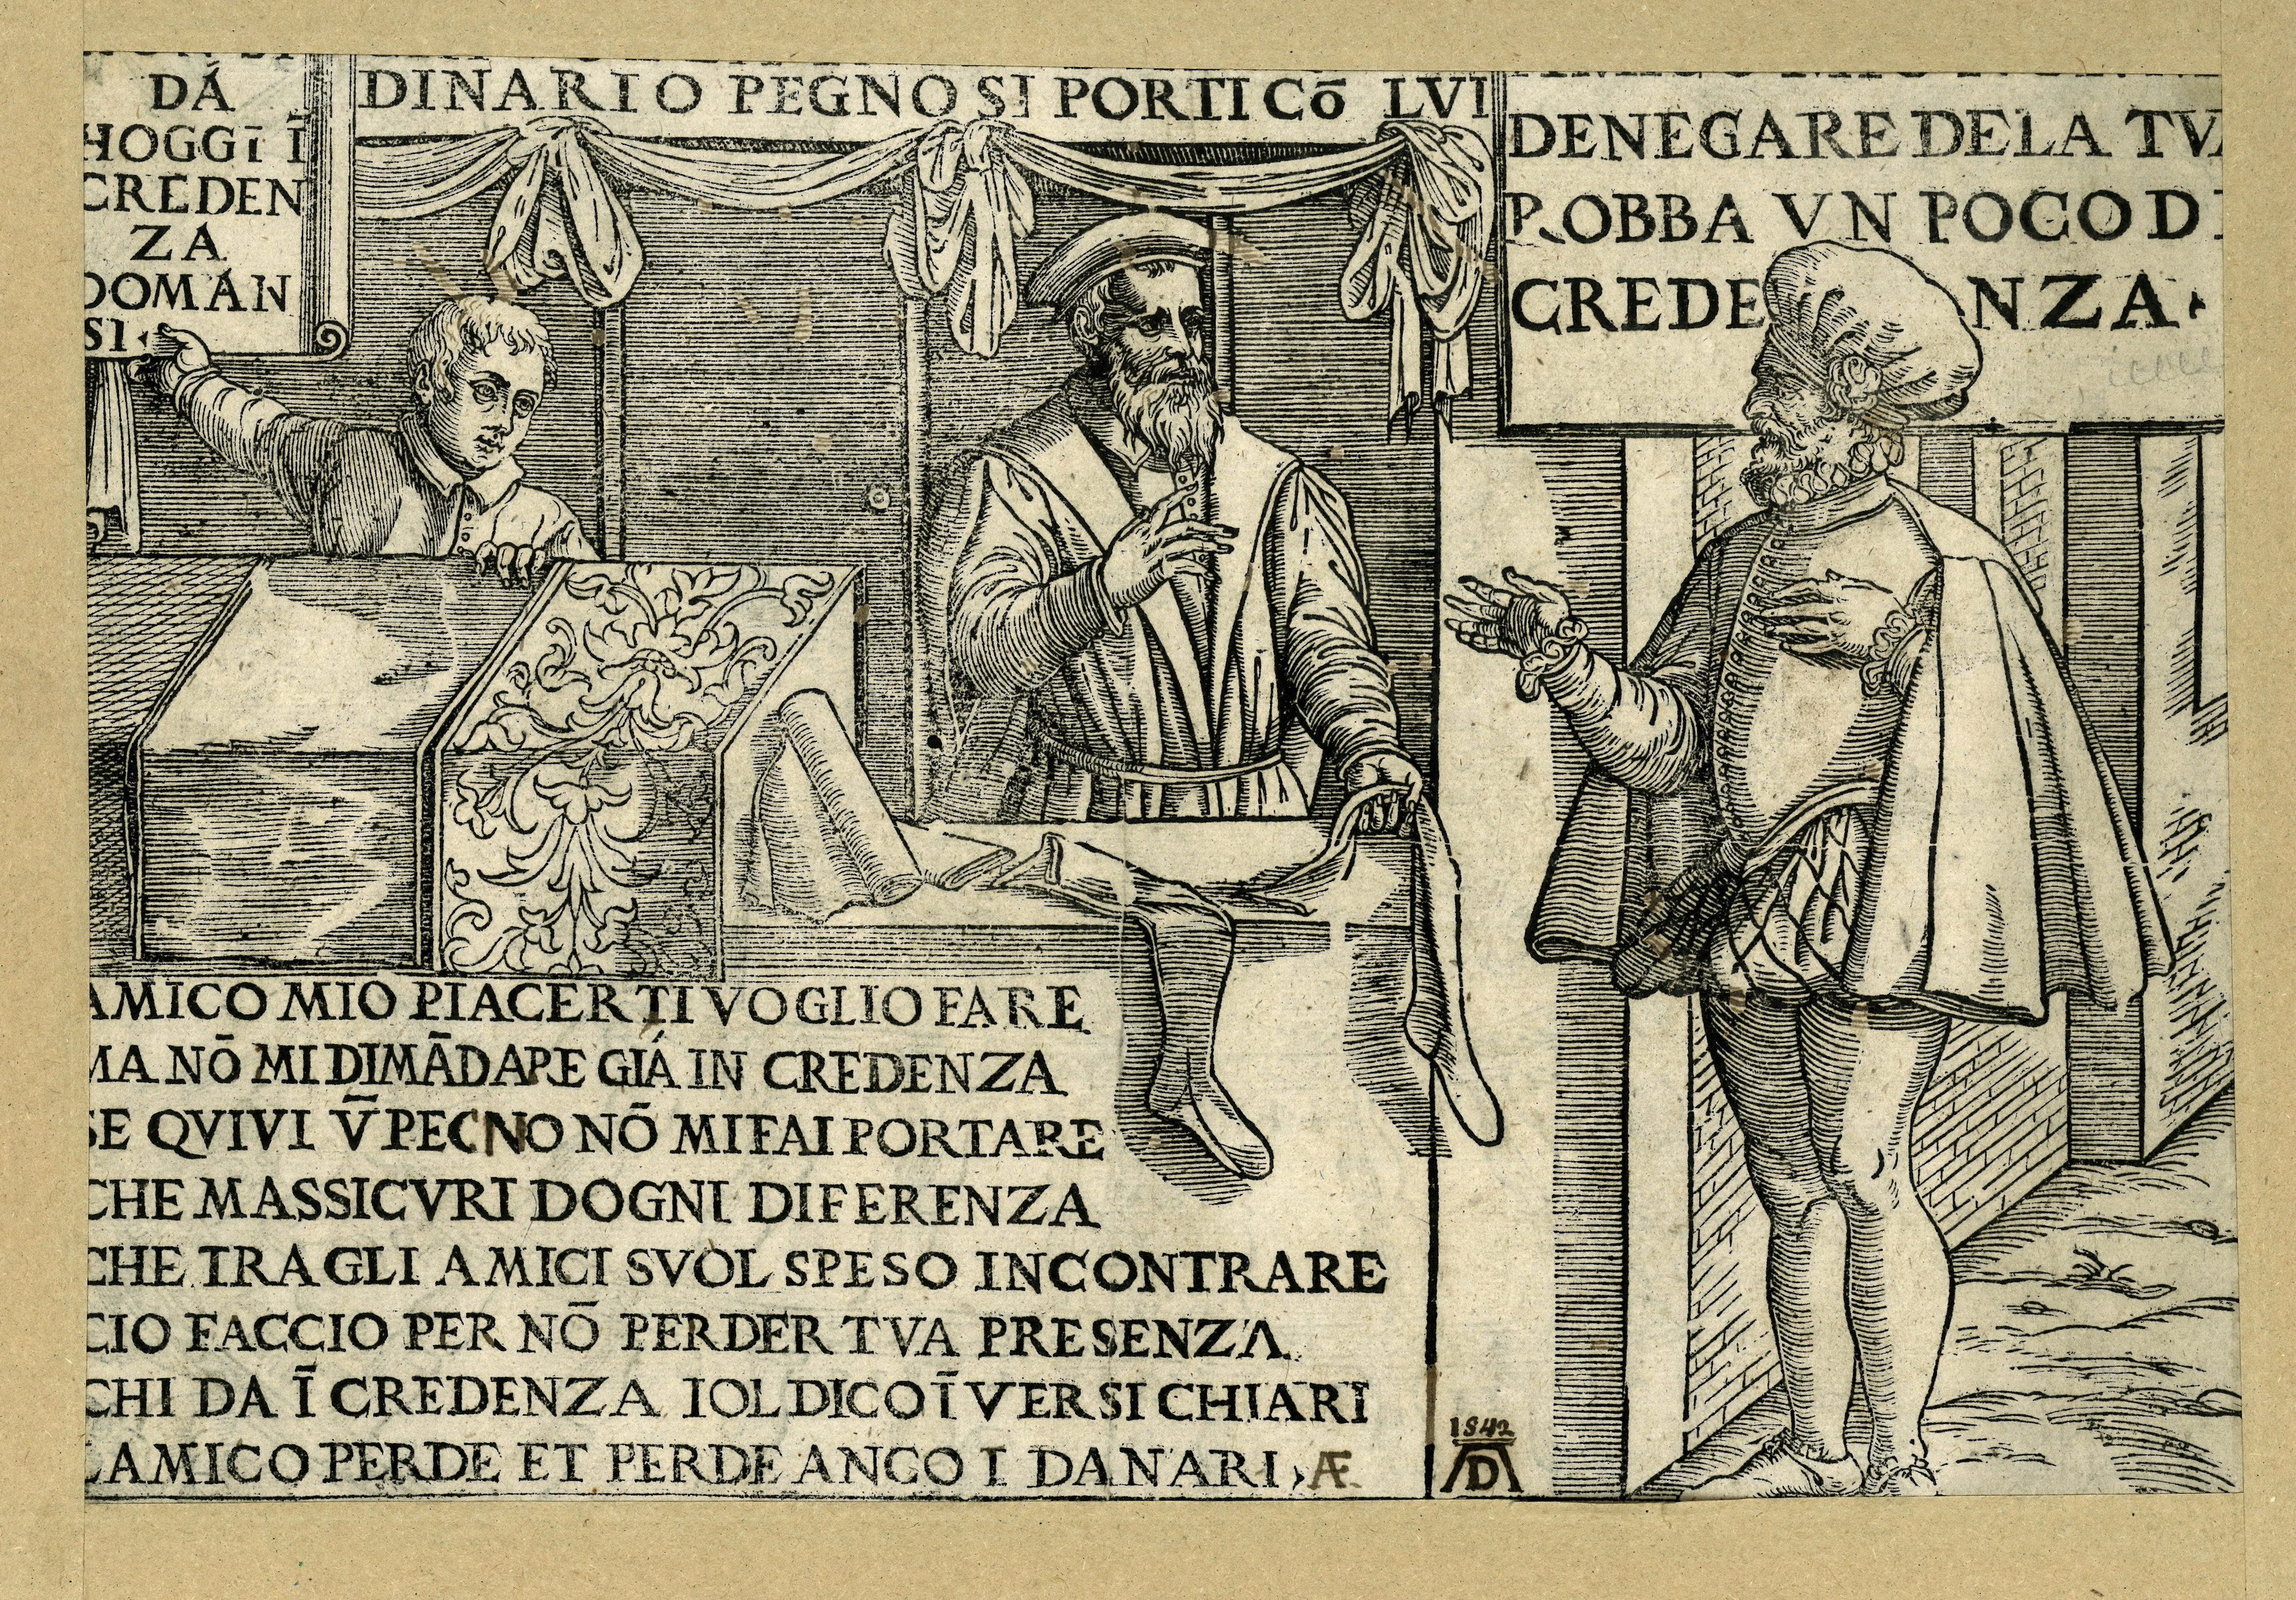 DÁ
HOGGI Ī
CREDEN
ZA
DOMAN
SI
DINARIO PEGNO SI PORTI CŌ LVI
DENEGARE DELA TVA
ROBBA VN POCO DI
CREDENZA
AMICO MIO PIACER TI VOGLIO FARE
MA NŌ MI DIMĀDARE GIÁ IN CREDENZA
SE QVIVI V̄ PEGNO NŌ MI FAI PORTARE
CHE MASSICVRI DOGNI DIFERENZA
CHE TRA GLI AMICI SVOL SPESO INCONTRARE
CIO FACCIO PER NŌ PERDER TVA PRESENZA
CHI DA Ī CREDENZA IOL DICO Ī VERSI CHIARI
LAMICO PERDE ET PERDE ANCO I DANARI Æ
1542
AD